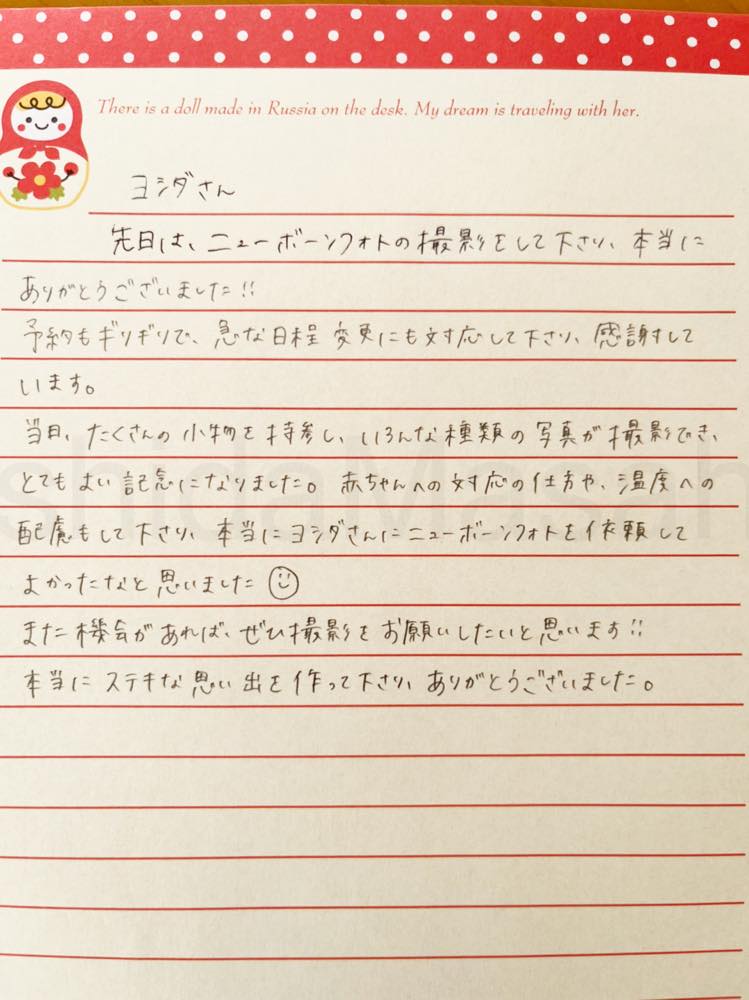 There is a doll made in Russia on the desk. My dream is traveling with her.
ヨシダさん
先日は、ニューボーンフォトの撮影をして下さり、本当に
ありがとうございました!!
予約もギリギリで、急な日程変更にも対応して下さり、感謝して
います。
当日、たくさんの小物を持参し、いろんな種類の写真が撮影でき、
とてもよい記念になりました。赤ちゃんへの対応の仕方や、温度への
配慮もして下さり、本当にヨシダさんにニューボーンフォトを依頼して
よかったなと思いました
また機会があれば、ぜひ撮影をお願いしたいと思います!!
本当にステキな思い出を作って下さり、ありがとうございました。